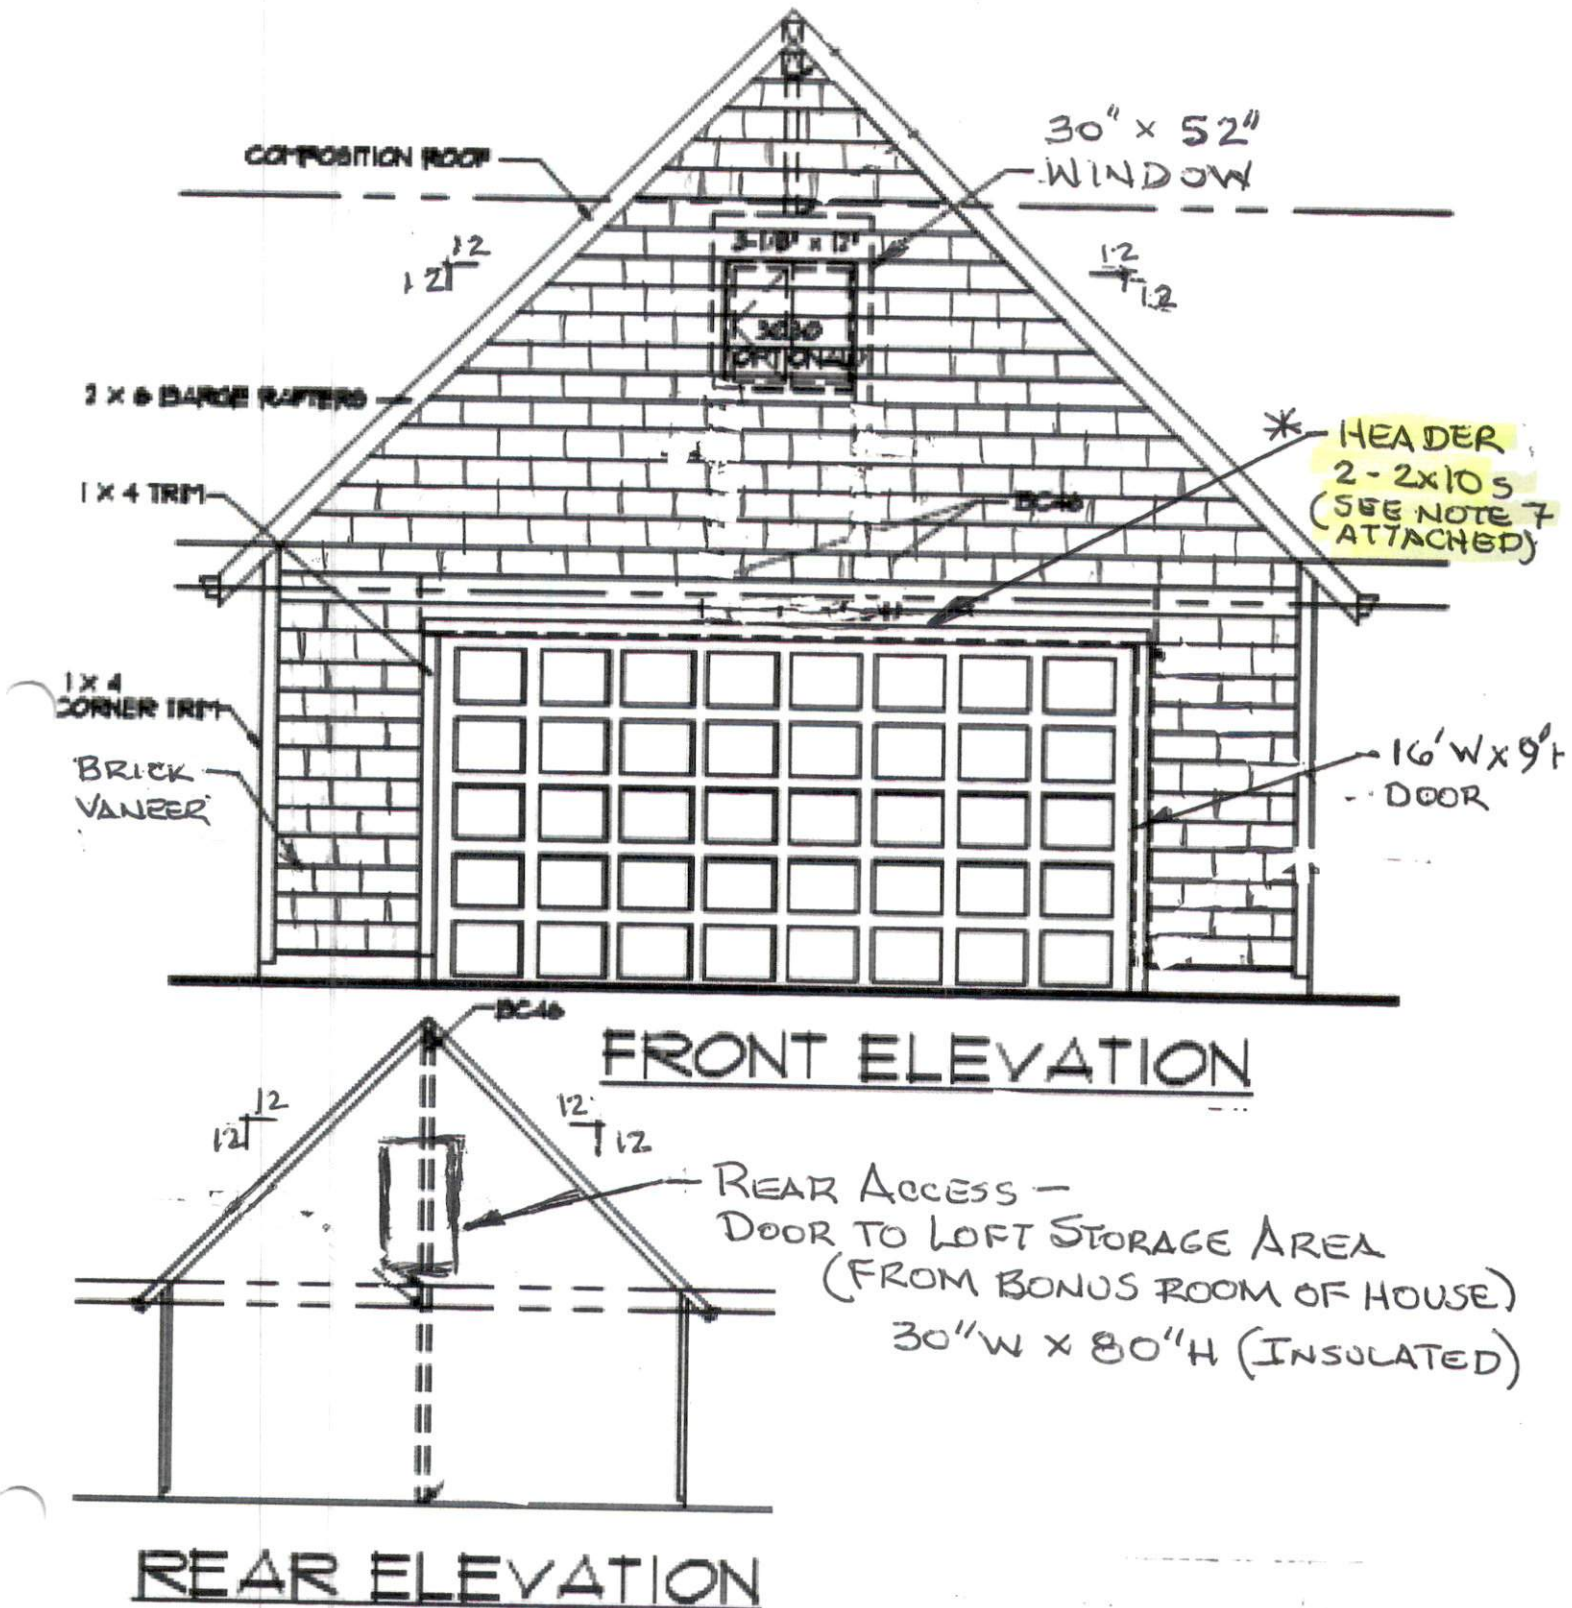 COMPOSITION ROOF
30" x 52"
WINDOW
12
12
3-1/8" x 12"
12
12
3030
(OPTIONAL)
2 X 6 BARGE RAFTERS
* HEADER
2-2x10s
(SEE NOTE 7
ATTACHED)
1 X 4 TRIM
BC46
1 X 4
CORNER TRIM
BRICK
VANEER
16'W x 9'H
DOOR
BC46
FRONT ELEVATION
12
12
12
12
REAR ACCESS -
DOOR TO LOFT STORAGE AREA
(FROM BONUS ROOM OF HOUSE)
30"W x 80"H (INSULATED)
REAR ELEVATION